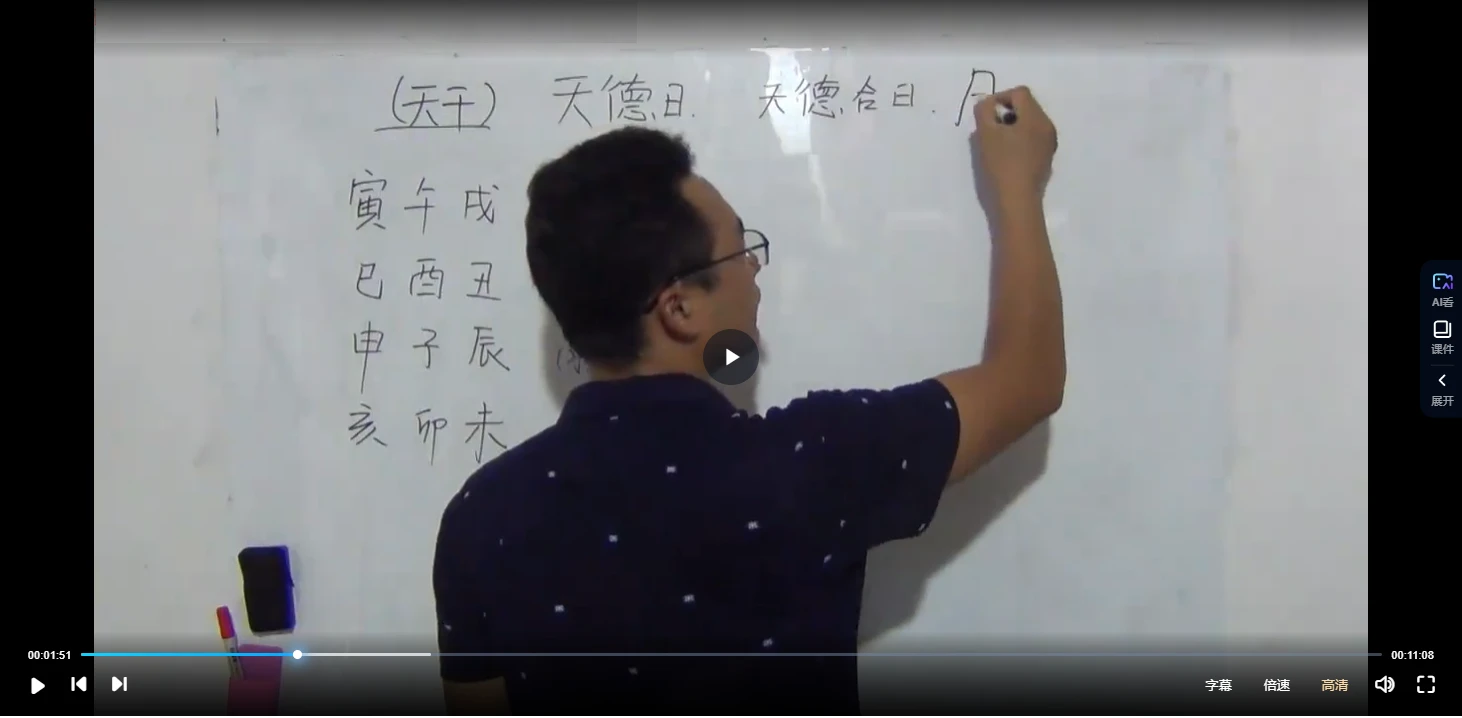 (天干) 天德日. 天德合日. 月
寅午戌
巳酉丑
申子辰
亥卯未
AI看
课件
展开
00:01:51
00:11:08
字幕 倍速 高清